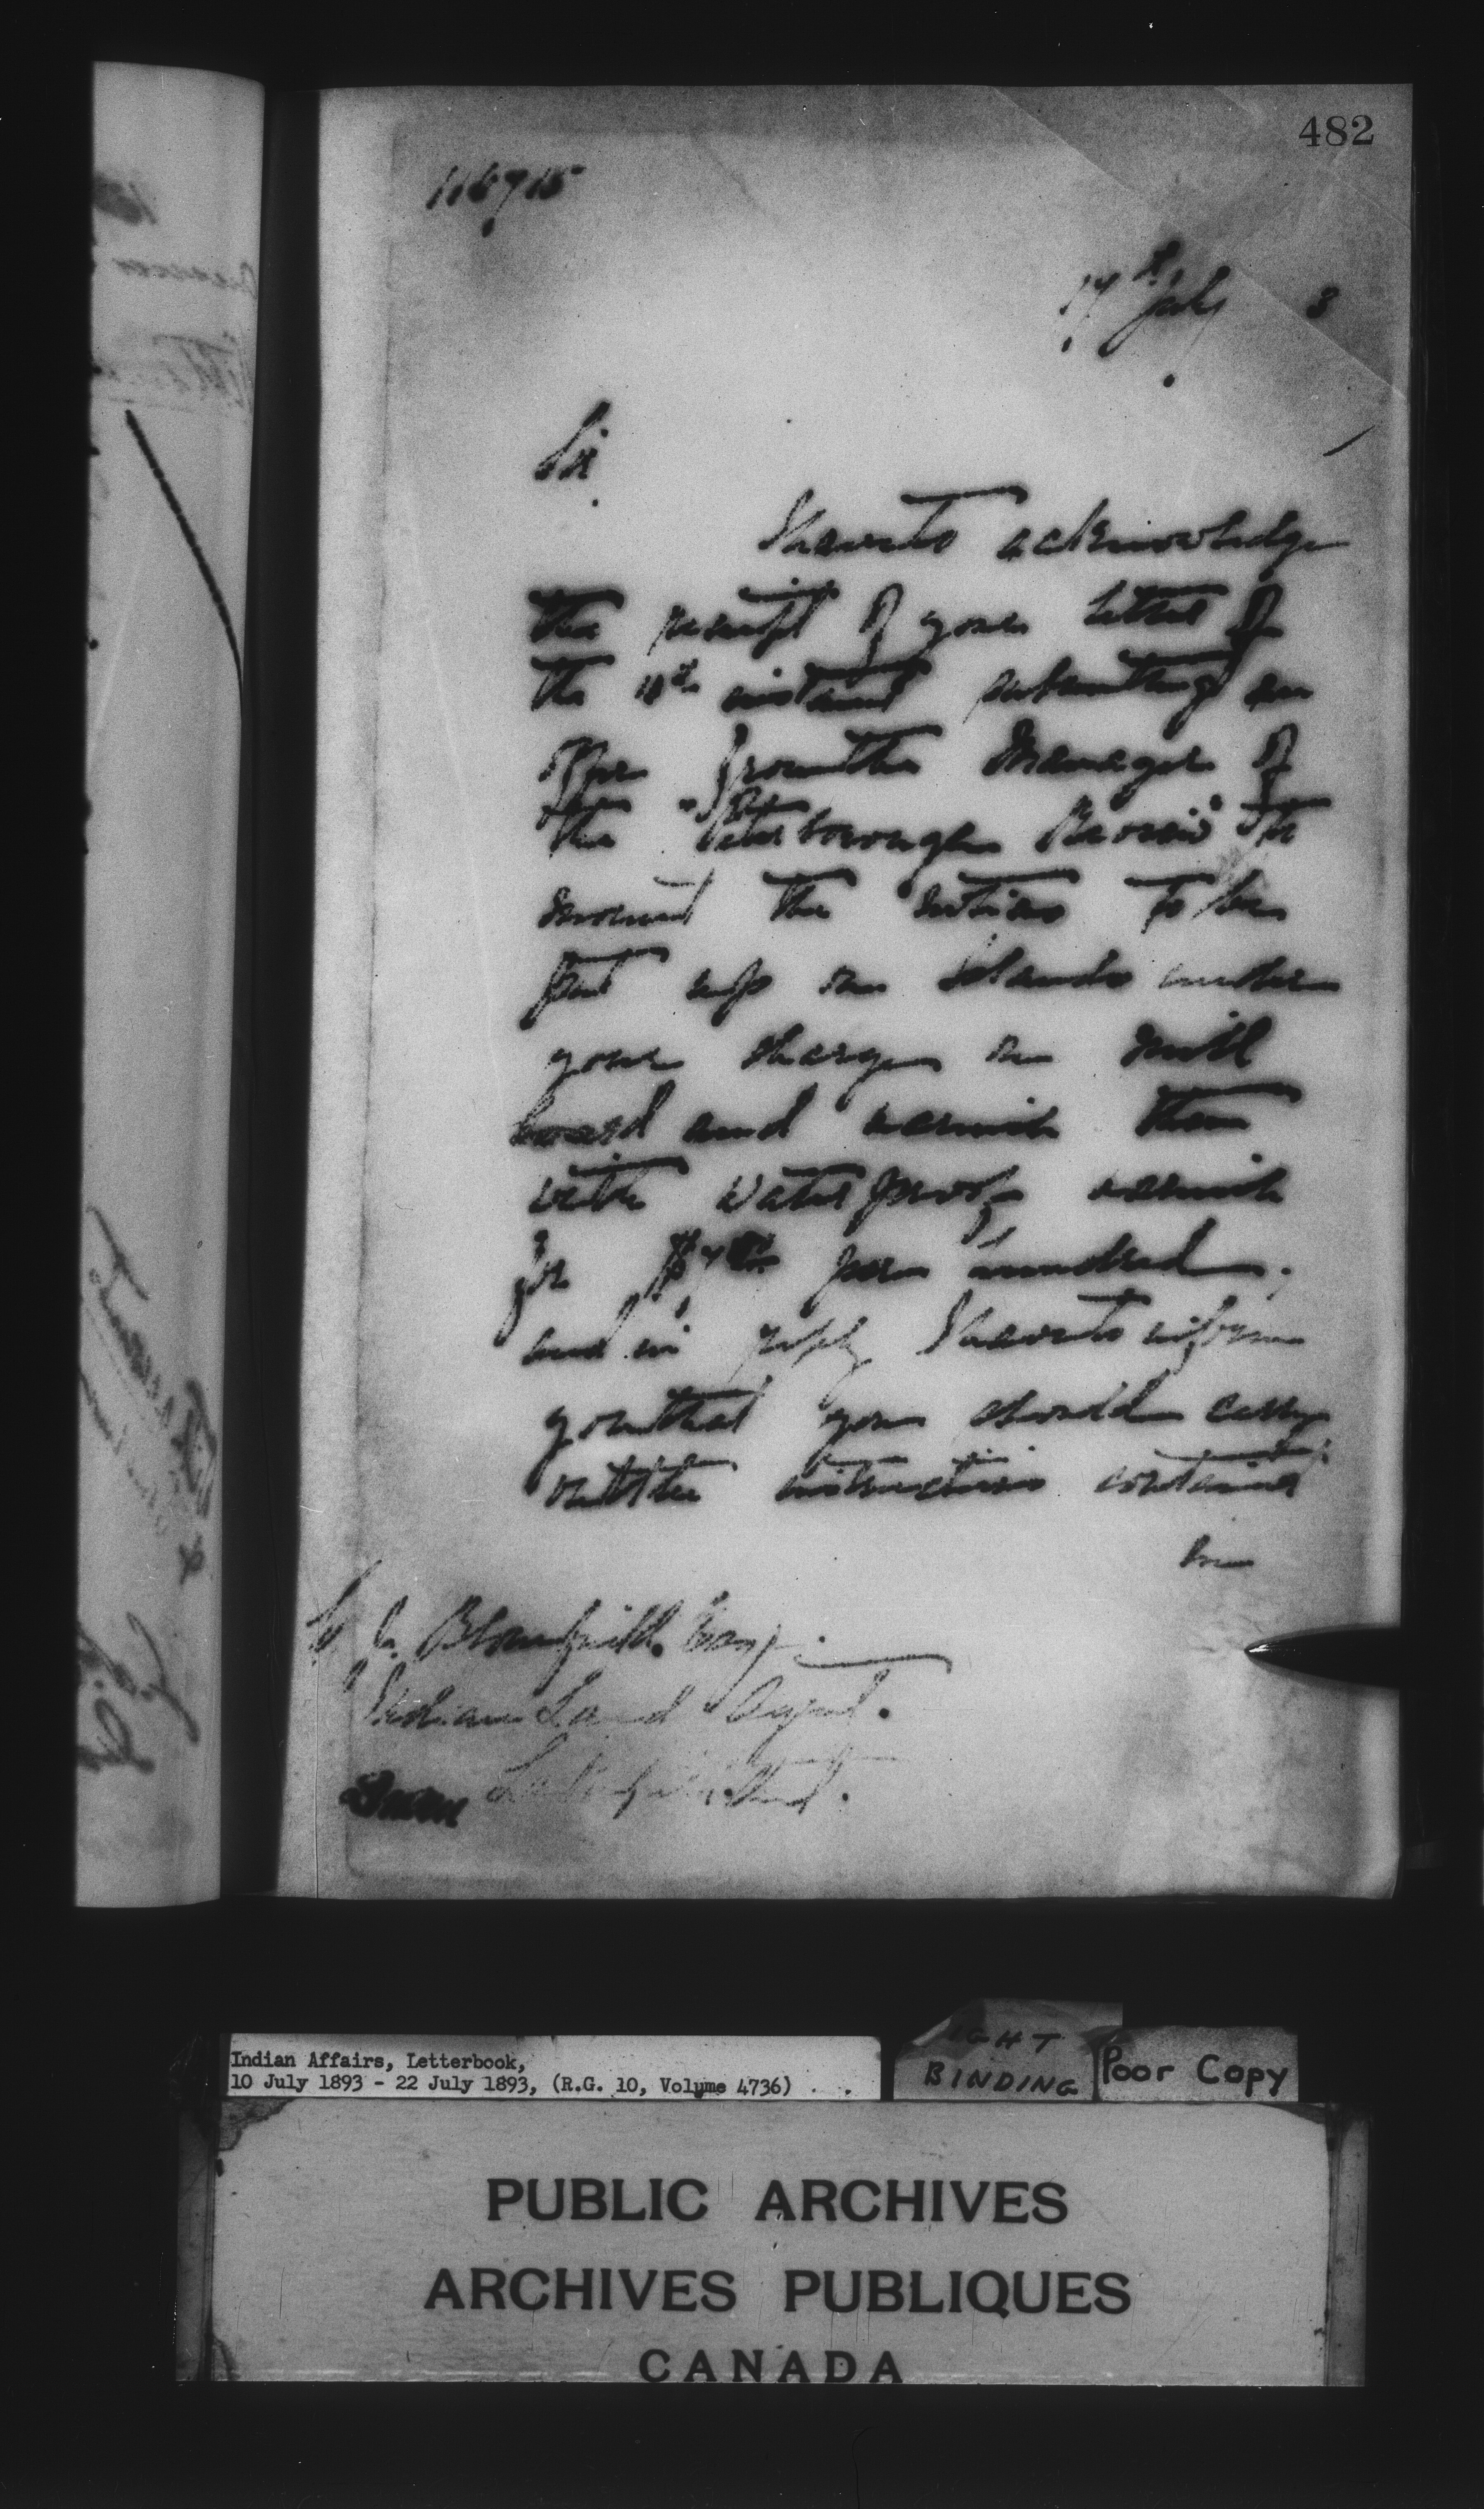 482
116715
17th July 3
Sir
I have to acknowledge
the receipt of your letter of
the instant submitting an
offer from the Manager of
the "Peterborough Review" to
mount the notices to be
put up on Islands under
your charge on mill
board and varnish them
with waterproof varnish
for per hundred,
and in reply I have to inform
you that you should carry
out the instructions contained
in
Bloomfield. Esq.
Indian Land Agent.
Lakefield, Ont.
Indian Affairs, Letterbook,
10 July 1893 - 22 July 1893, (R.G. 10, Volume 4736)
IGHT
BINDING
Poor Copy
PUBLIC ARCHIVES
ARCHIVES PUBLIQUES
CANADA